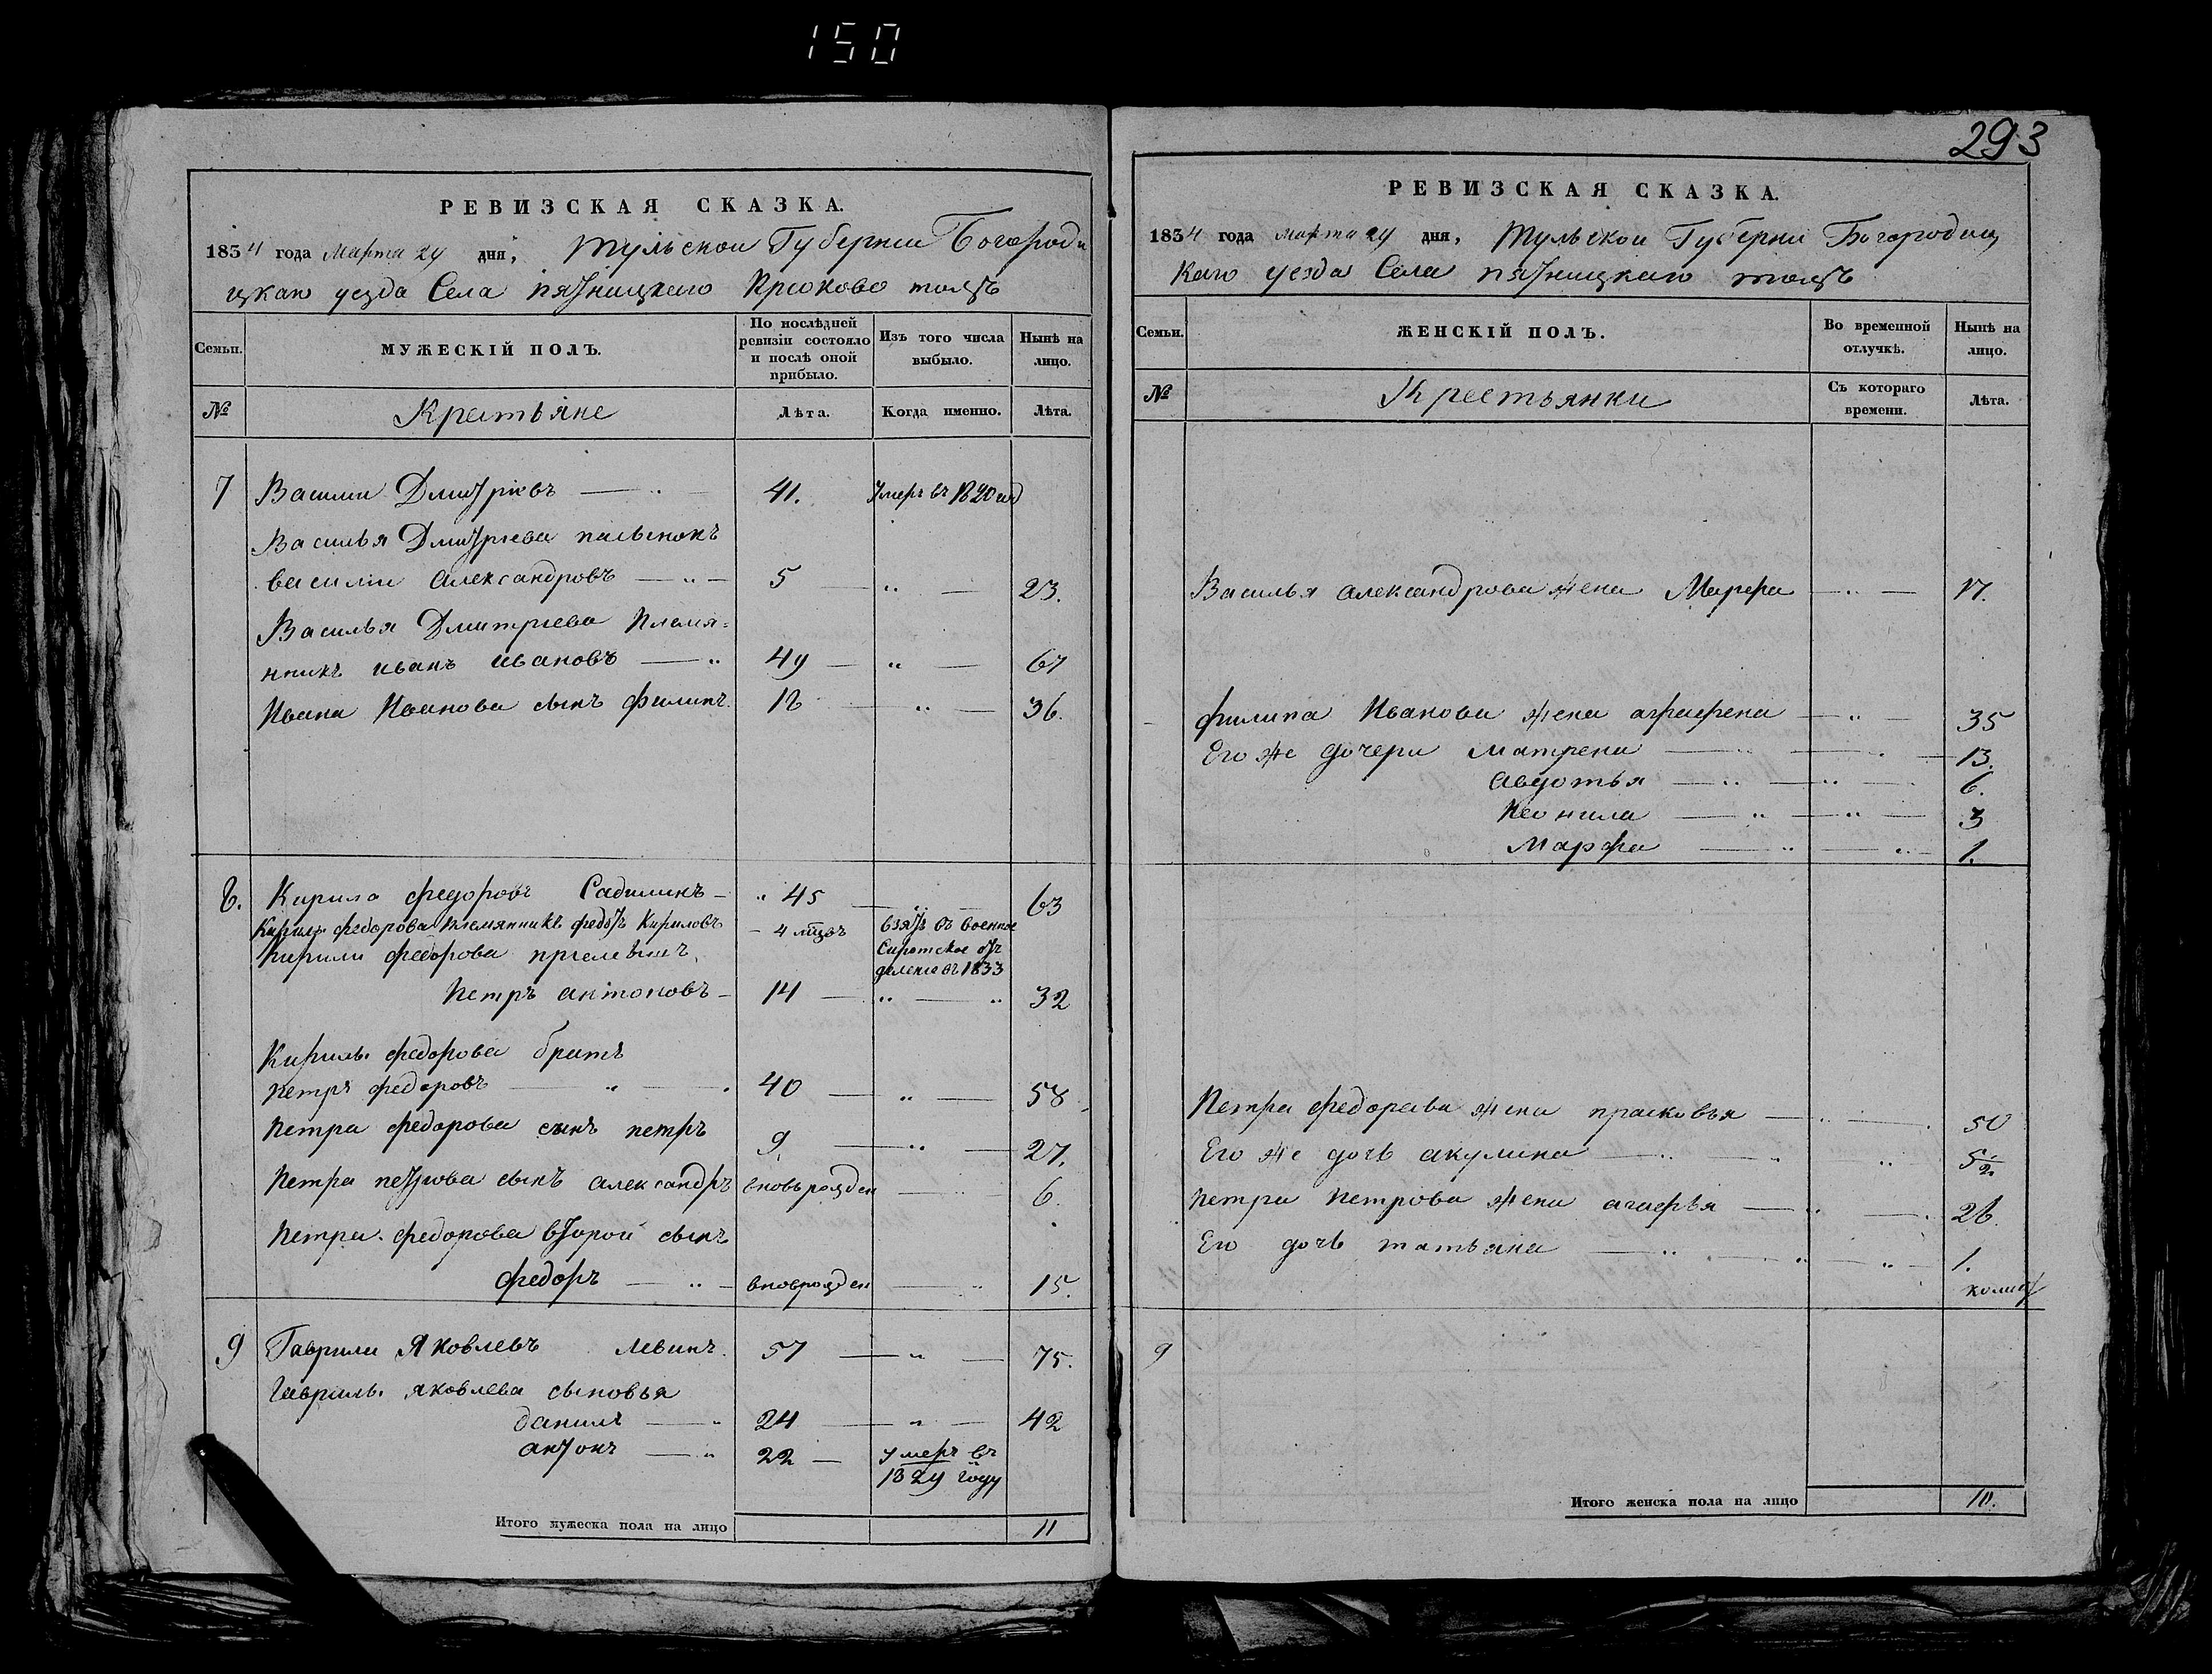 150
293
РЕВИЗСКАЯ СКАЗКА.
1834 года марта 29 дня, Тульской Губернии Богороди
цкаго уезда Села пятницкаго Крюково тожъ
Семьи.
МУЖЕСКІЙ ПОЛЪ.
По послѣдней ревизіи состояло и послѣ оной прибыло.
Изъ того числа выбыло.
Нынѣ на лицо.
№
Крестьяне
Лѣта.
Когда именно.
Лѣта.
7 Василий Дмитріевъ 41. Умеръ въ 1820 год
Василья Дмитриева пасынокъ
василий александровъ 5 23.
Василья Дмитриева племя=
нникъ иванъ ивановъ 49 67
Ивана Иванова сынъ филипъ. 18 36.
8. Кирила федоровъ Садилинъ 45 63
Кирилы федорова племянникъ федотъ Кириловъ 4 мѣсецъ взятъ въ военное
Кирилы федорова приемышъ, Сиротское от
деление въ 1833
Петръ антоновъ 14 32
Кирилы федорова братъ
петръ федоровъ 40 58
Петра федорова сынъ петръ 9. 27.
Петра петрова сынъ александръ вновь рожден 6.
Петра федорова второй сынъ
федоръ внов рожден 15.
9 Гаврила Яковлевъ Левинъ. 57 75.
Гаврилы яковлева сыновья
данилъ 24 42
антонъ 22 Умеръ въ
1829 году
Итого мужеска пола на лицо 11
РЕВИЗСКАЯ СКАЗКА.
1834 года марта 29 дня, Тульской Губернии Богородиц
каго уезда Села пятницкаго тожъ
Семьи.
ЖЕНСКІЙ ПОЛЪ.
Во временной отлучкѣ.
Нынѣ на лицо.
№
Крестьянки
Съ котораго времени.
Лѣта.
Василья александрова жена Марфа 17.
филипа Иванова жена аграфена 35
Его же дочери матрена 13.
авдотья 6.
Неонила 3
Марфа 1.
Петра федорова жена прасковья 50
Его же дочь акулина 5 1/2
петра петрова жена агафья 26.
Его дочь татьяна 1.
9
Итого женска пола на лицо 10.